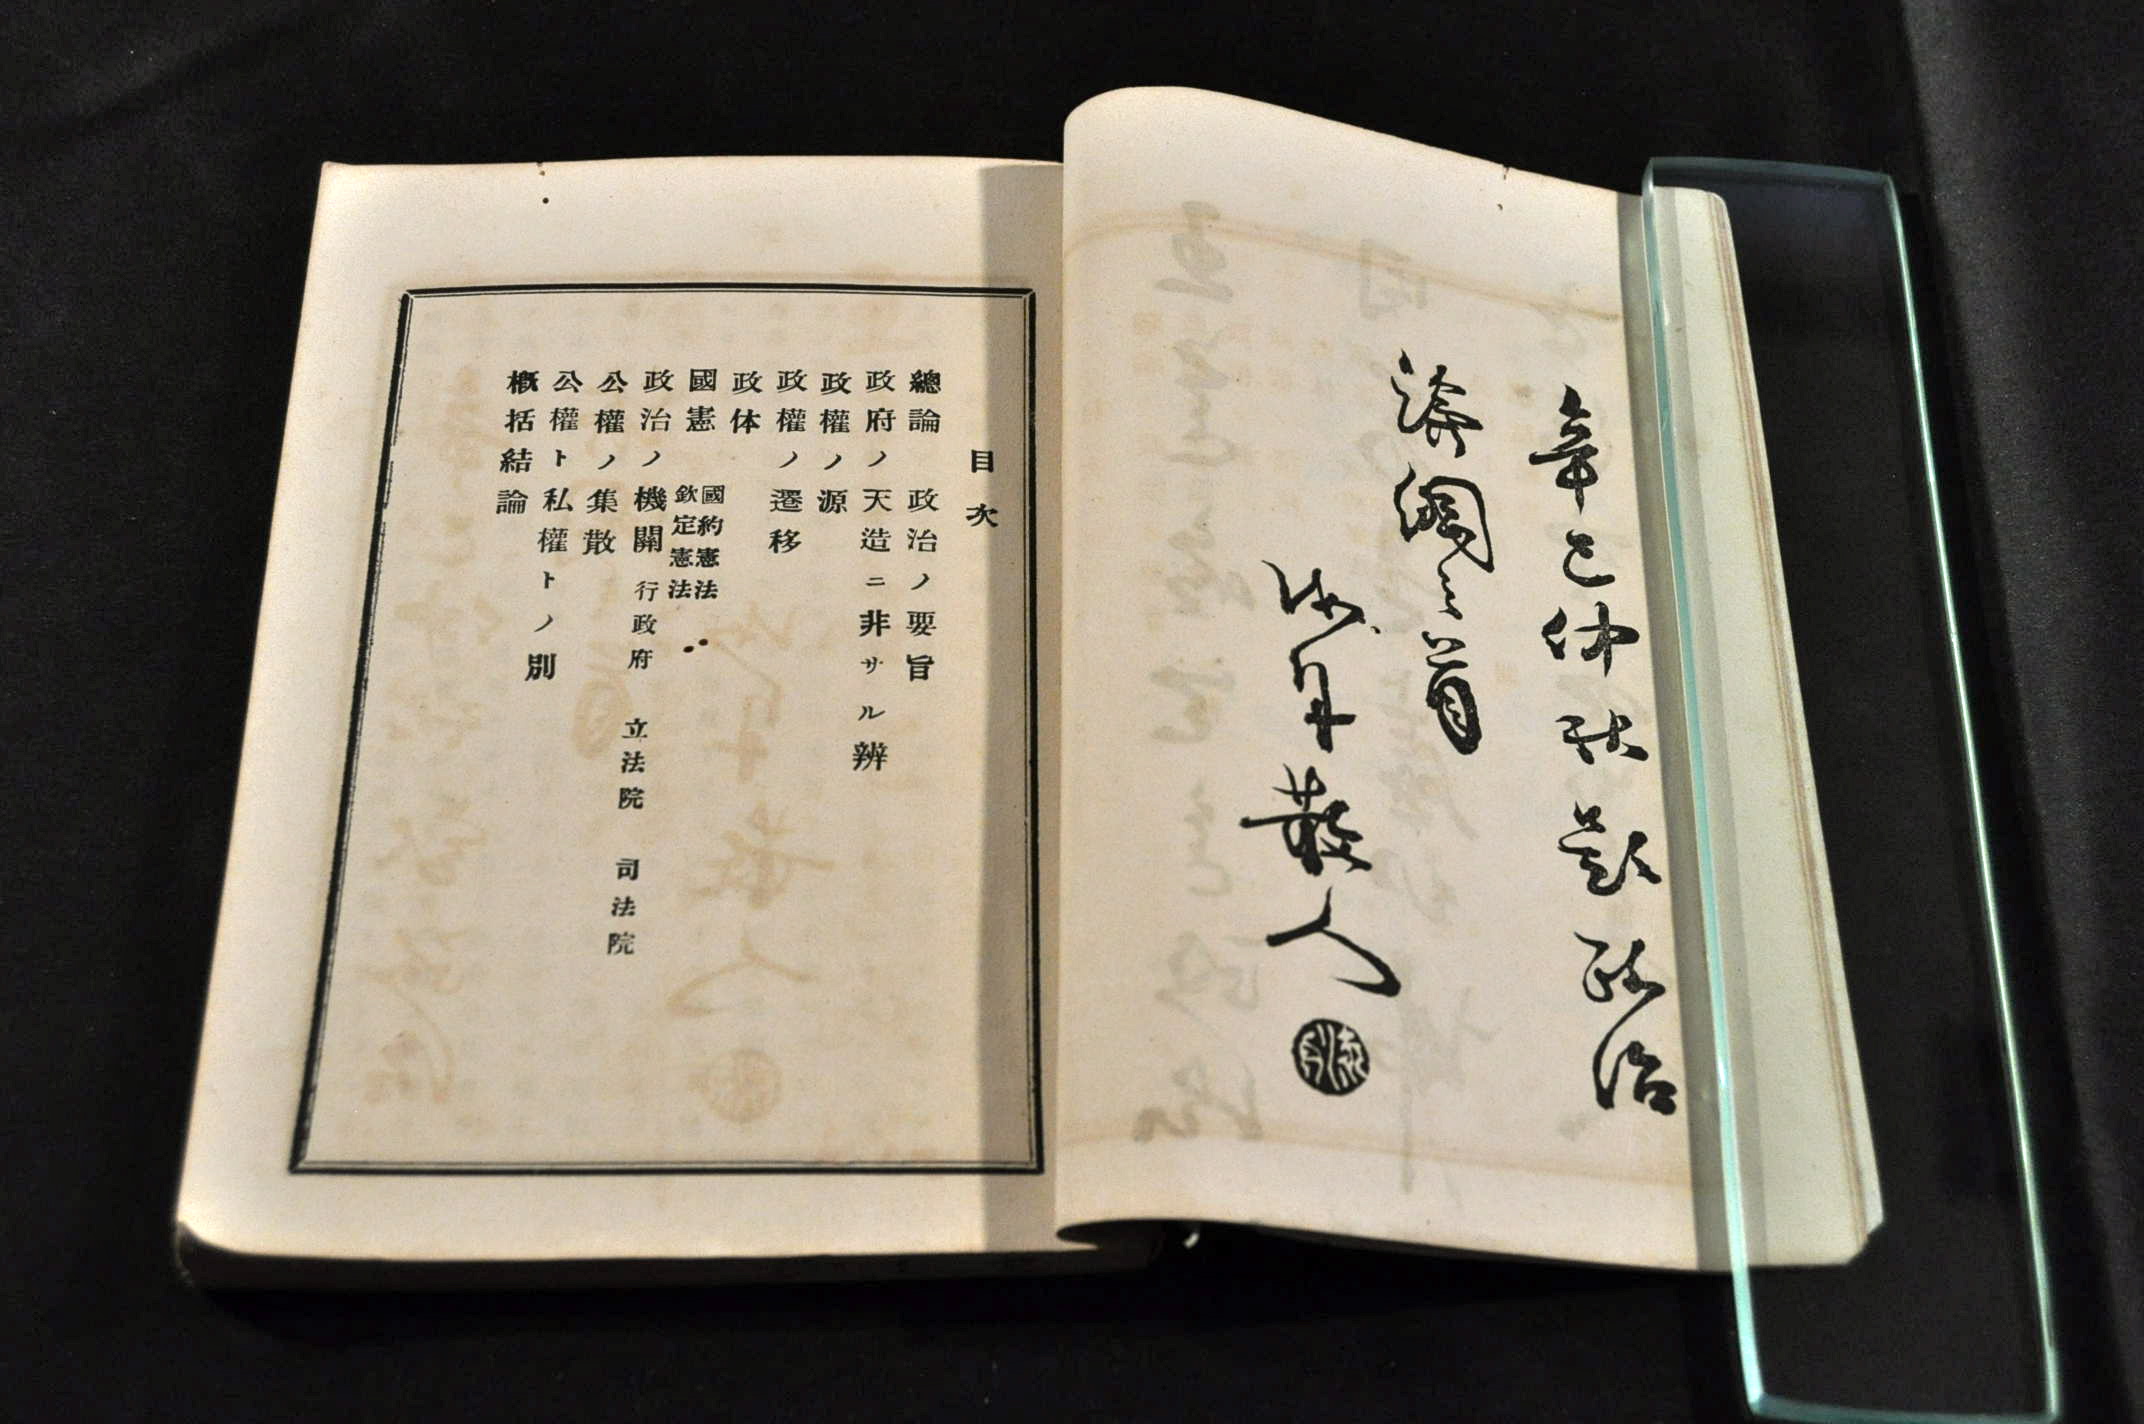 辛巳仲秋題政治
論綱之首
散人
目次
總論 政治ノ要旨
政府ノ天造ニ非サル辨
政權ノ源
政權ノ遷移
政体
國憲 國約憲法
欽定憲法
政治ノ機關 行政府 立法院 司法院
公權ノ集散
公權ト私權トノ別
概括結論